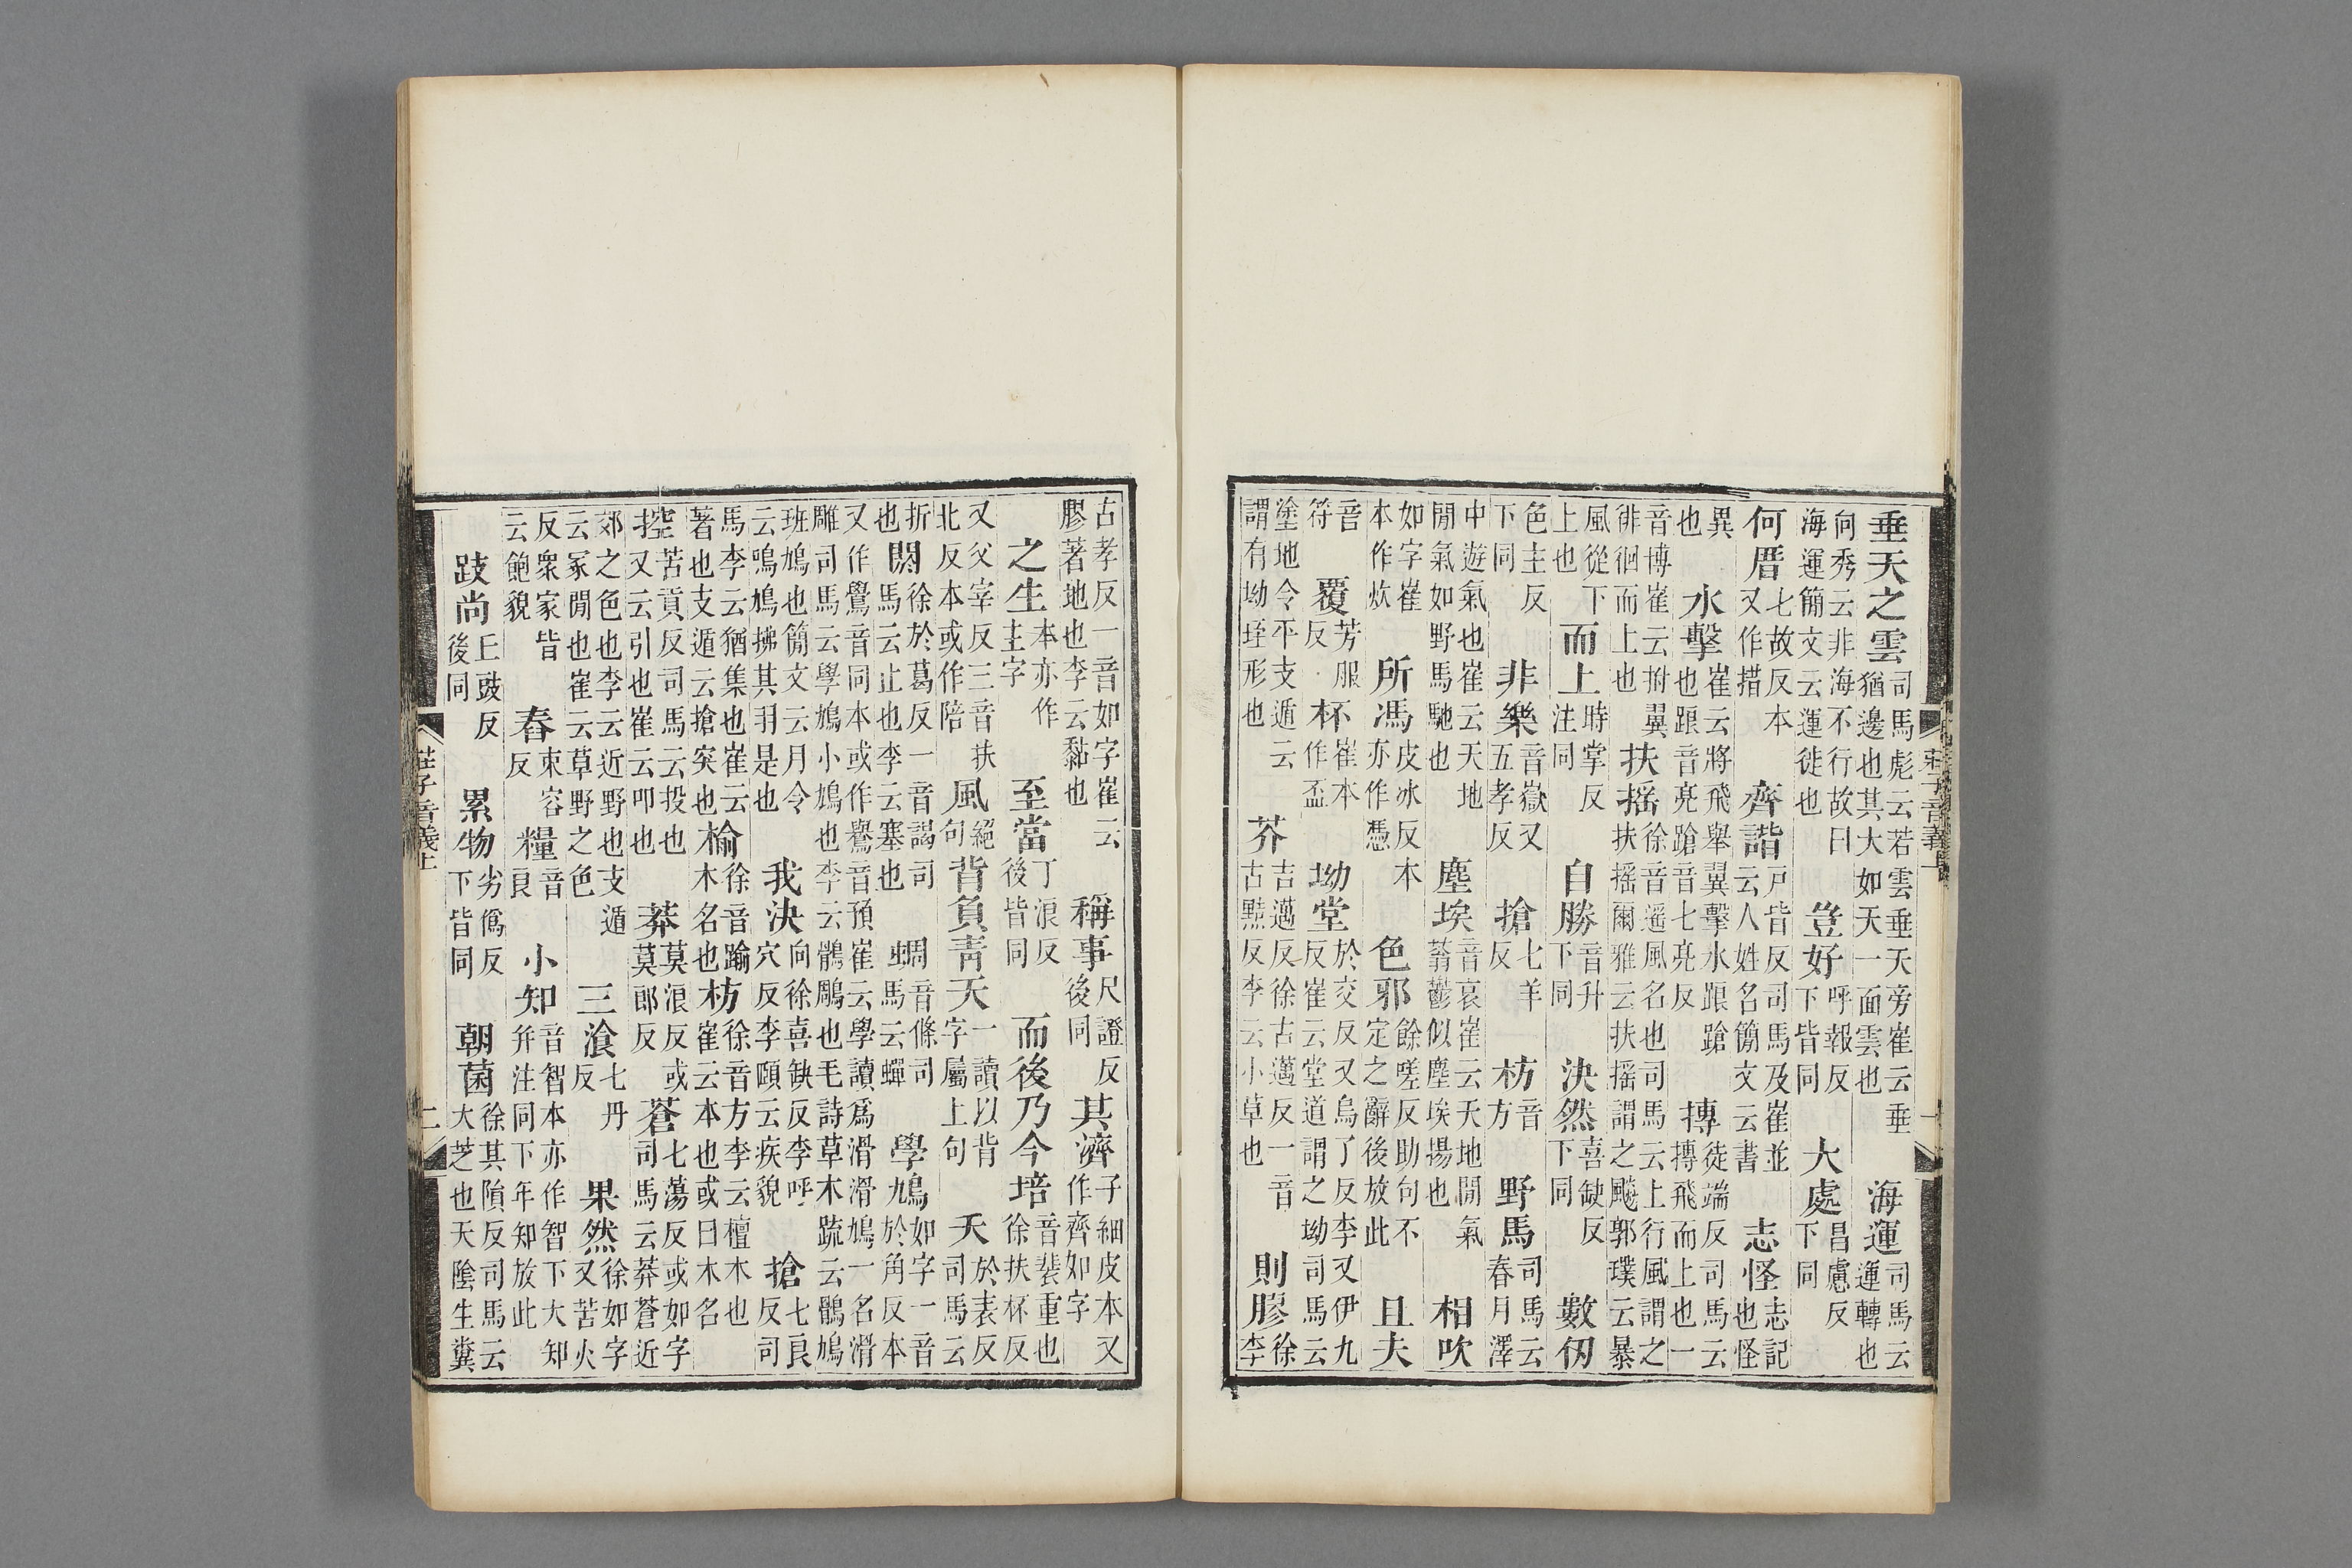 垂天之雲司馬彪云若雲垂天旁崔云垂猶邊也其大如天一面雲也 海運司馬云運轉也
向秀云非海不行故曰海運簡文云運徙也 豈好呼報反下皆同 大處昌慮反下同
何厝七故反本又作措 齊諧戸皆反司馬及崔並云人姓名簡文云書 志怪志記也怪
異也 水擊崔云將飛舉翼擊水踉蹌也踉音亮蹌音七亮反 摶徒端反司馬云摶飛而上也一
音博崔云拊翼徘徊而上也 扶搖徐音遙風名也司馬云上行風謂之扶搖爾雅云扶搖謂之飈郭璞云暴
風從下上也 而上時掌反注同 自勝音升下同 決然喜缺反下同 數仞
色主反下同 非樂音嶽又五孝反 搶七羊反 枋音方 野馬司馬云春月澤
中遊氣也崔云天地閒氣如野馬馳也 塵埃音哀崔云天地閒氣蓊鬱似塵埃揚也 相吹
如字崔本作炊 所馮皮冰反本亦作憑 色邪餘嗟反助句不定之辭後放此 且夫
音符 覆芳服反 杯崔本作盃 坳堂於交反又烏了反李又伊九反崔云堂道謂之坳司馬云
塗地令平支遁云謂有坳垤形也 芥吉邁反徐古邁反一音古黠反李云小草也 則膠徐李
莊子音義上 一
古孝反一音如字崔云膠著地也李云黏也 稱事尺證反後同 其濟子細皮本又作齊如字
之生本亦作主字 至當丁浪反後皆同 而後乃今培音裴重也徐扶杯反
又父宰反三音扶北反本或作陪 風絕句 背負靑天一讀以背字屬上句 夭於表反司馬云
折也 閼徐於葛反一音謁司馬云止也李云塞也 蜩音條司馬云蟬 學鳩如字一音於角反本
又作鷽音同本或作譽音預崔云學讀爲滑滑鳩一名滑雕司馬云學鳩小鳩也李云鶻鵰也毛詩草木疏云鶻鳩
班鳩也簡文云月令云鳴鳩拂其羽是也 我決向徐喜缺反李呼穴反李頤云疾貌 搶七良反司
馬李云猶集也崔云著也支遁云搶突也 榆徐音踰木名也 枋徐音方李云檀木也崔云本也或曰木名
控苦貢反司馬云投也又云引也崔云叩也 莽莫浪反或莫郎反 蒼七蕩反或如字司馬云莽蒼近
郊之色也李云近野也支遁云冢閒也崔云草野之色 三飡七丹反 果然徐如字又苦火
反衆家皆云飽貌 舂束容反 糧音良 小知音智本亦作智下大知幷注同下年知放此
跂尚丘豉反後同 累物劣僞反下皆同 朝菌徐其隕反司馬云大芝也天陰生糞
莊子音義上 二